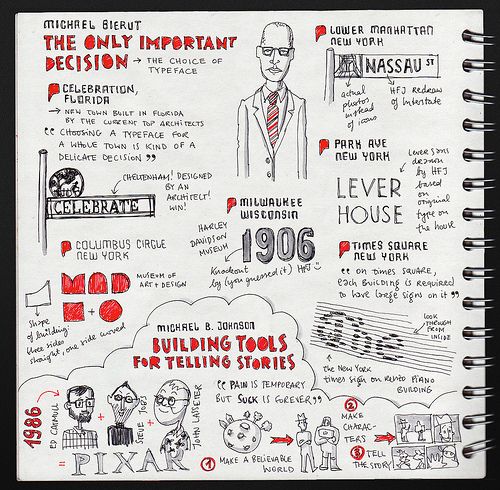 MICHAEL BIERUT
THE ONLY IMPORTANT
DECISION → THE CHOICE OF
TYPEFACE
CELEBRATION,
FLORIDA
→ NEW TOWN BUILT IN FLORIDA
BY THE CURRENT TOP ARCHITECTS
“ CHOOSING A TYPEFACE FOR
A WHOLE TOWN IS KIND OF A
DELICATE DECISION ”
CHELTENHAM! DESIGNED
BY AN
ARCHITECT!
WIN!
CELEBRATE
LOWER MANHATTAN
NEW YORK
NASSAU ST
actual
photos
instead
of icons
HFJ Redraw
of Interstate
PARK AVE
NEW YORK
LEVER
HOUSE
Lever sans
drawn
by HFJ
based
on
original
type on
the house
MILWAUKEE
WISCONSIN
HARLEY
DAVIDSON
MUSEUM
1906
Knockout
by (you guessed it) HFJ
COLUMBUS CIRCLE
NEW YORK
MAD
MUSEUM OF
ART + DESIGN
+
Shape
of building:
three sides
straight, one side curved
TIMES SQUARE
NEW YORK
“ ON TIMES SQUARE,
EACH BUILDING IS REQUIRED
TO HAVE LARGE SIGNS ON IT ”
The
LOOK
THROUGH
FROM
INSIDE
the New York
times sign on RENZO PIANO
BUILDING
MICHAEL B. JOHNSON
BUILDING TOOLS
FOR TELLING STORIES
1986
ED CATMULL
+
STEVE JOBS
+
JOHN LASSETER
= PIXAR
“ PAIN IS TEMPORARY
BUT SUCK IS FOREVER ”
1 MAKE A BELIEVABLE
WORLD
2
MAKE
CHARAC-
TERS
3 TELL
THE STORY